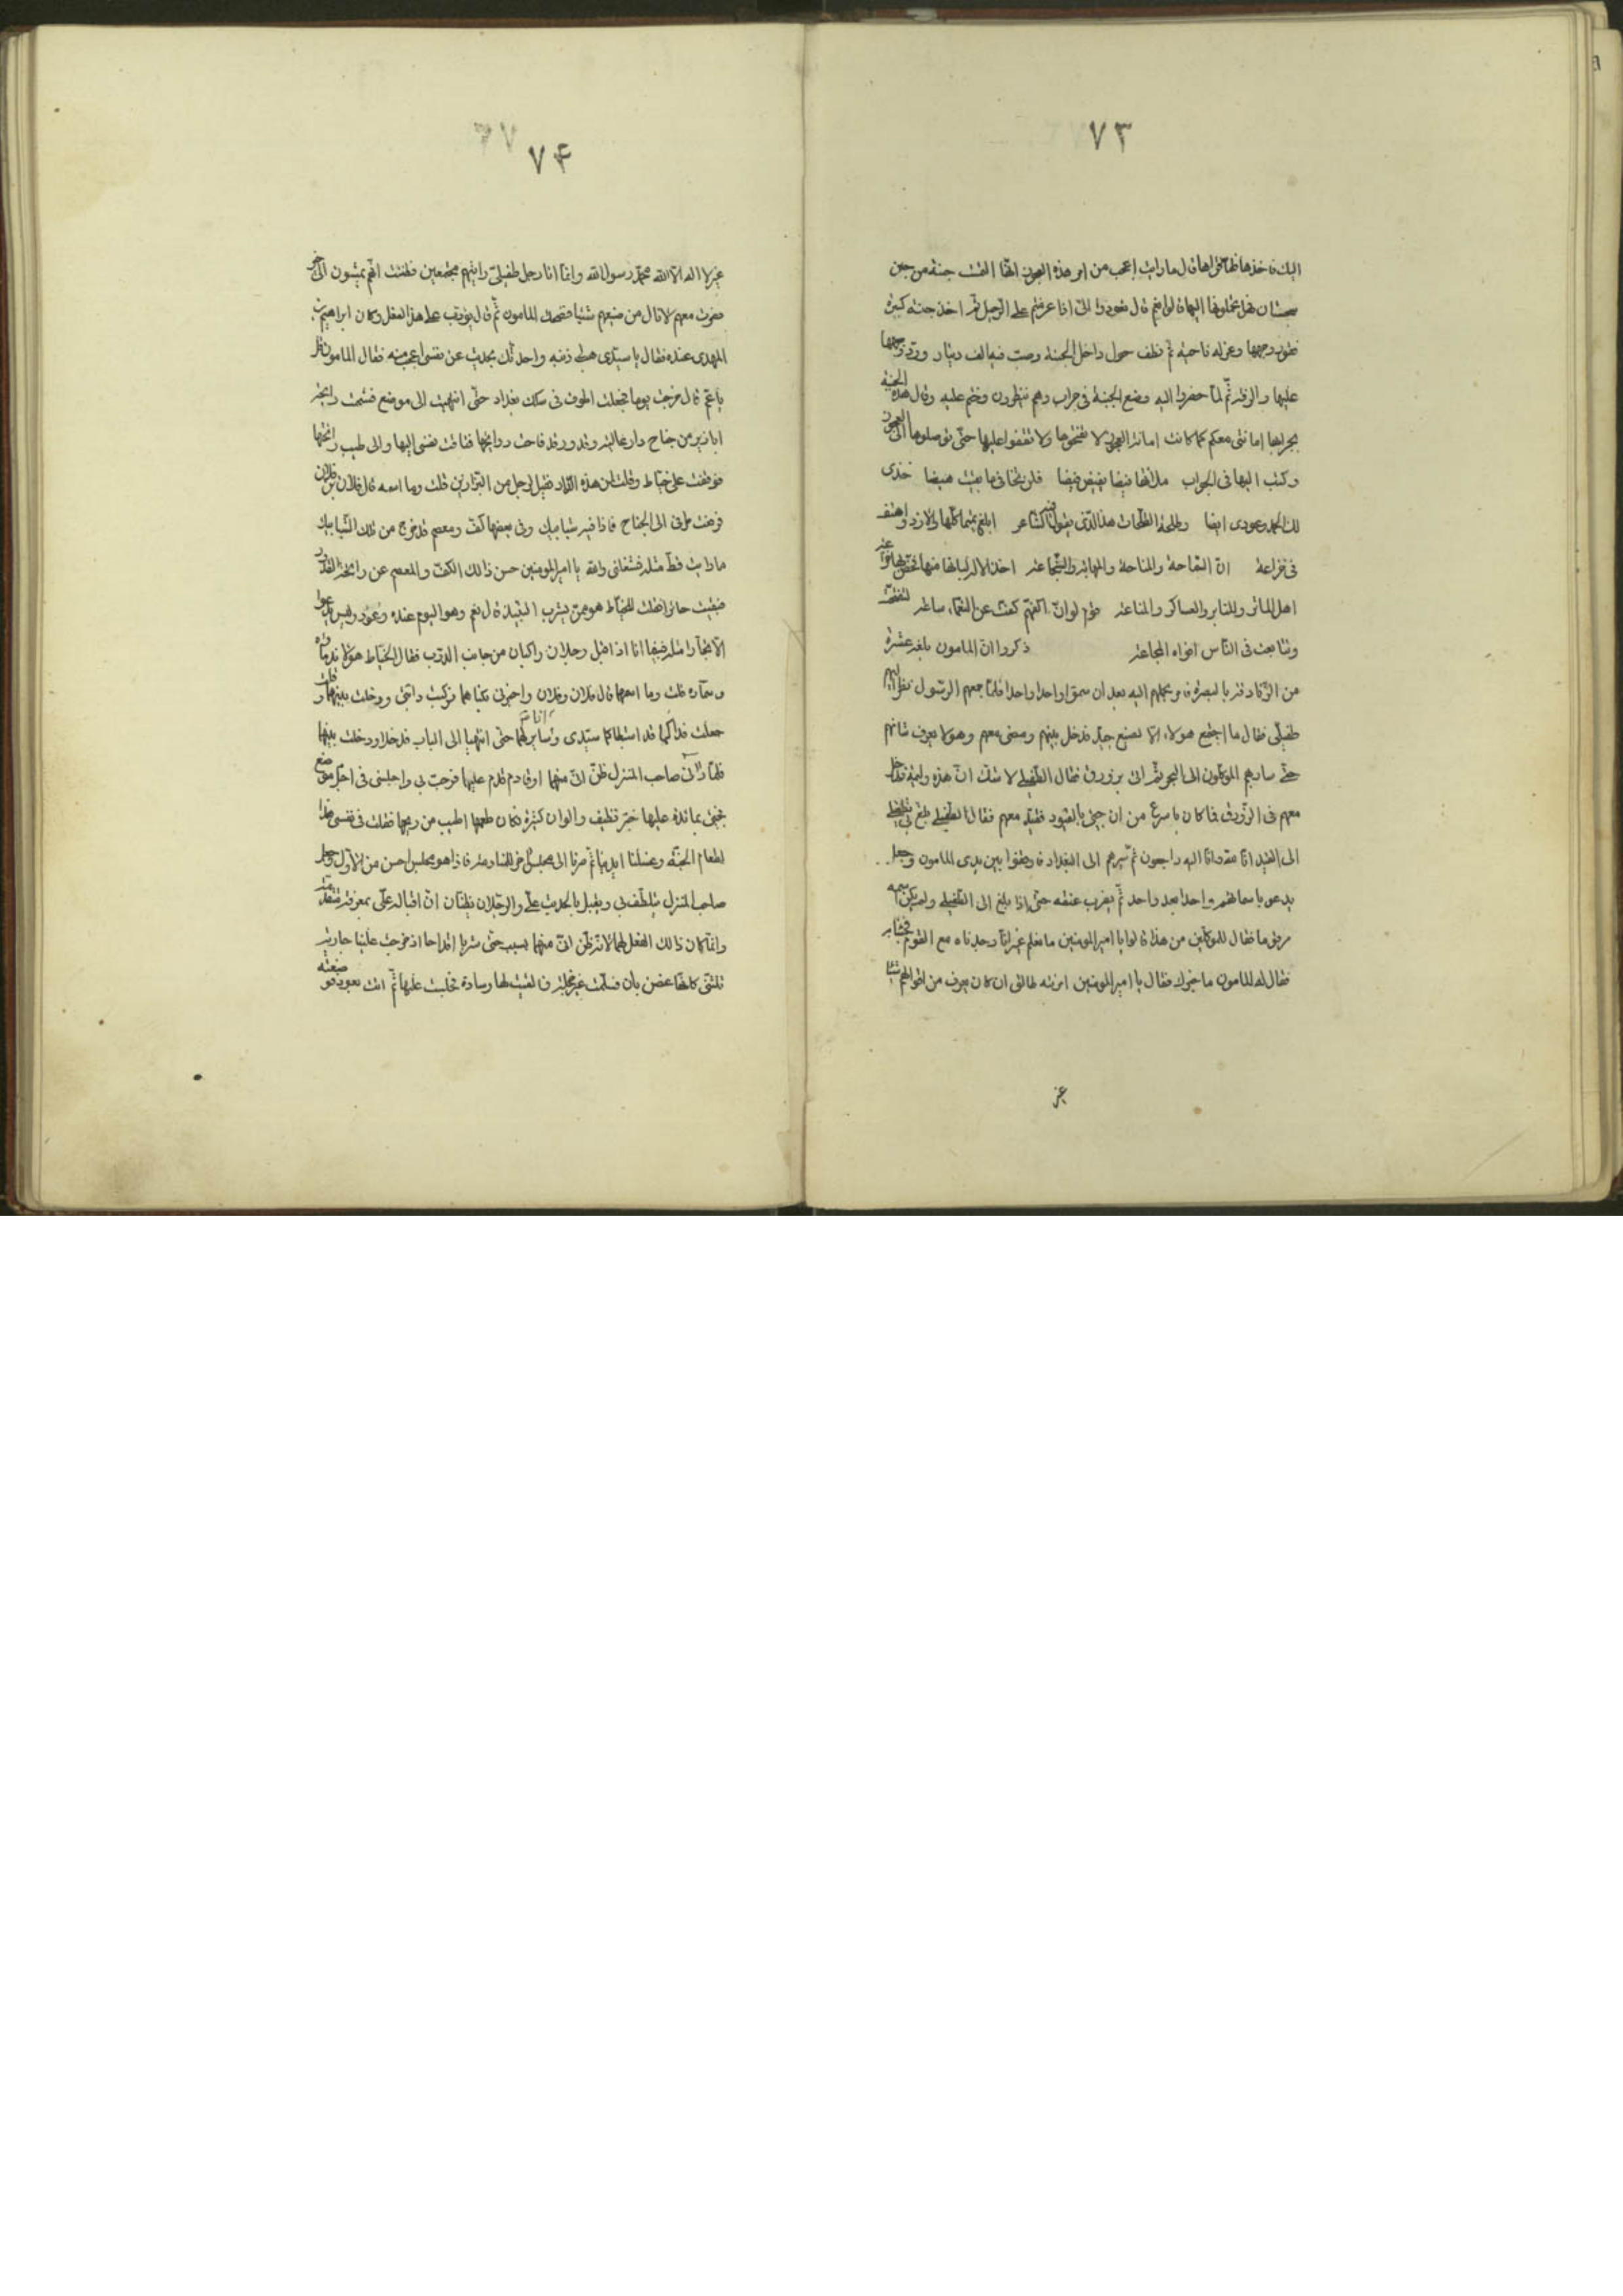 ٧٣
اليك فاخذها فلما قراها قال ما رايت اعجب من امر هذه العجوز انها الفت جبنة من جبن
سجستان فهل تحملونها اليها قالوا نعم قال تعودوا الىّ اذا عزمتم على الرحيل ثم اخذ جبنة كبيرة
وجهها وعزله ناحية ثم نظف حول داخل الجبنة وصب فيه الف دينار ورد وجهها
عليها والزقه ثم لما حضروا اليه وضع الجبنة فى جراب وهم ينظرون وختم عليه وقال هذه الجبنة
بجرابها امانتى معكم كما كانت امانة العجوز لا تفتحوها ولا تقفوا عليها حتى توصلوها الى العجوز
وكتب اليها فى الجواب ملأتها فيضا يفيض فيضا فلن تخافى ما بقيت هيضا خذى
لك الحمد وعودى ايضا وطلحة الطلحات هذا الذى يقول فيه الشاعر
فى خزاعة ان السماحة والمهابة والشجاعة
اهل المآثر والمنابر والعساكر والمناعة قوم لو ان اكفهم كفت عن النعماء ساعة
وتتابعت فى الناس افواه المجاعة ذكروا ان المامون بلغه عشرة
من الزنادقة بالبصرة فامر بحملهم اليه بعد ان سموا واحدا واحدا فلما جمعهم الرسول نظر اليهم
طفيلى فقال ما اجتمع هولاء الا لصنيع جيد فدخل بينهم ومضى معهم وهو لا يعرف شانهم
حتى سار بهم الموكلون الى البحر ثم اتى بزورق فقال الطفيلى لا شك ان هذه وليمة فدخل
معهم فى الزورق فما كان باسرع من ان جيئ بالقيود فقيد معهم فقال الطفيلى بلغ بى تطفلى
الى القيد انا لله وانا اليه راجعون ثم سيرهم الى البغداد فاوقفوا بين يدى المامون وجعل
يدعو باسمائهم واحدا بعد واحد ثم يضرب عنقه حتى اذا بلغ الى الطفيلى ولم يكن اسمه
مرقوما فقال للموكلين من هذا قالوا يا امير المومنين ما نعلم غير انا وجدناه مع القوم فجئنا به
فقال له المامون ما خبرك فقال يا امير المومنين امرئته طالق ان كان يعرف من احوالهم شيئا
غير
٧۴
غير لا اله الا الله محمد رسول الله وانما انا رجل طفيلى رايتهم مجتمعين فظننت انهم يمشون الى خير
فصرت معهم لانال من صنيعهم شيئا فضحك المامون ثم قال يؤدب على هذا الفعل وكان ابراهيم بن
المهدى عنده فقال يا سيدى هب لى ذنبه واحدثك بحديث عن نفسى اعجب منه فقال المامون قل
يا عم قال خرجت يوما فجعلت اطوف فى سكك بغداد حتى انتهيت الى موضع فشممت رائحة
ابازير من جناح دار عالية وقدور قد فاحت روائحها فتاقت نفسى اليها والى طيب رائحتها
فوقفت على خياط وقلت لمن هذه الدار فقيل لرجل من البزازين قلت وما اسمه قال فلان بن فلان
فرفعت طرفى الى الجناح فاذا فيه شبابيك وفى بعضها كف ومعصم قد خرج من تلك الشبابيك
ما رايت قط مثله فشغلنى والله يا امير المومنين حسن ذالك الكف والمعصم عن رائحة القدور
فبقيت حائرا فقلت للخياط هو ممن يشرب النبيذ قال نعم وهو اليوم عنده دعوة وليس يدعوا
الا تجارا مثله فبينا انا اذ اقبل رجلان راكبان من جانب الدرب فقال الخياط هولاء ندماؤه
وسماره قلت وما اسمهما قال فلان وفلان واخبرنى بكناهما فركبت دابتى ودخلت بينهما وقلت
جعلت فداكما قد استبطاكما سيدى وانا سايرتهما حتى انتهيا الى الباب فدخلا ودخلت بينهما
فلما رانى صاحب المنزل ظن انى منهما او قادم قدم عليهما فرحب بى واجلسنى فى اجل موضع
فجيئ بمائدة عليها خبز نظيف والوان كثيرة فكان طعمها اطيب من ريحها فقلت فى نفسى هذا
لطعام الجنة وغسلنا ايدينا ثم صرنا الى مجلس اخر للمنادمة فاذا هو مجلس احسن من الاول وجعل
صاحب المنزل يتلطف بى ويقبل بالحديث على والرجلان يظنان ان اقباله على بمعرفة متقدمة
وانما كان ذالك الفعل لهما لانه ظن انى منهما بسبب حتى شربنا اقداحا اذ خرجت علينا جارية
تتثنى كانها غصن بان فسلمت غير خجلة فالقيت لها وسادة فجلست عليها ثم اتت بعود